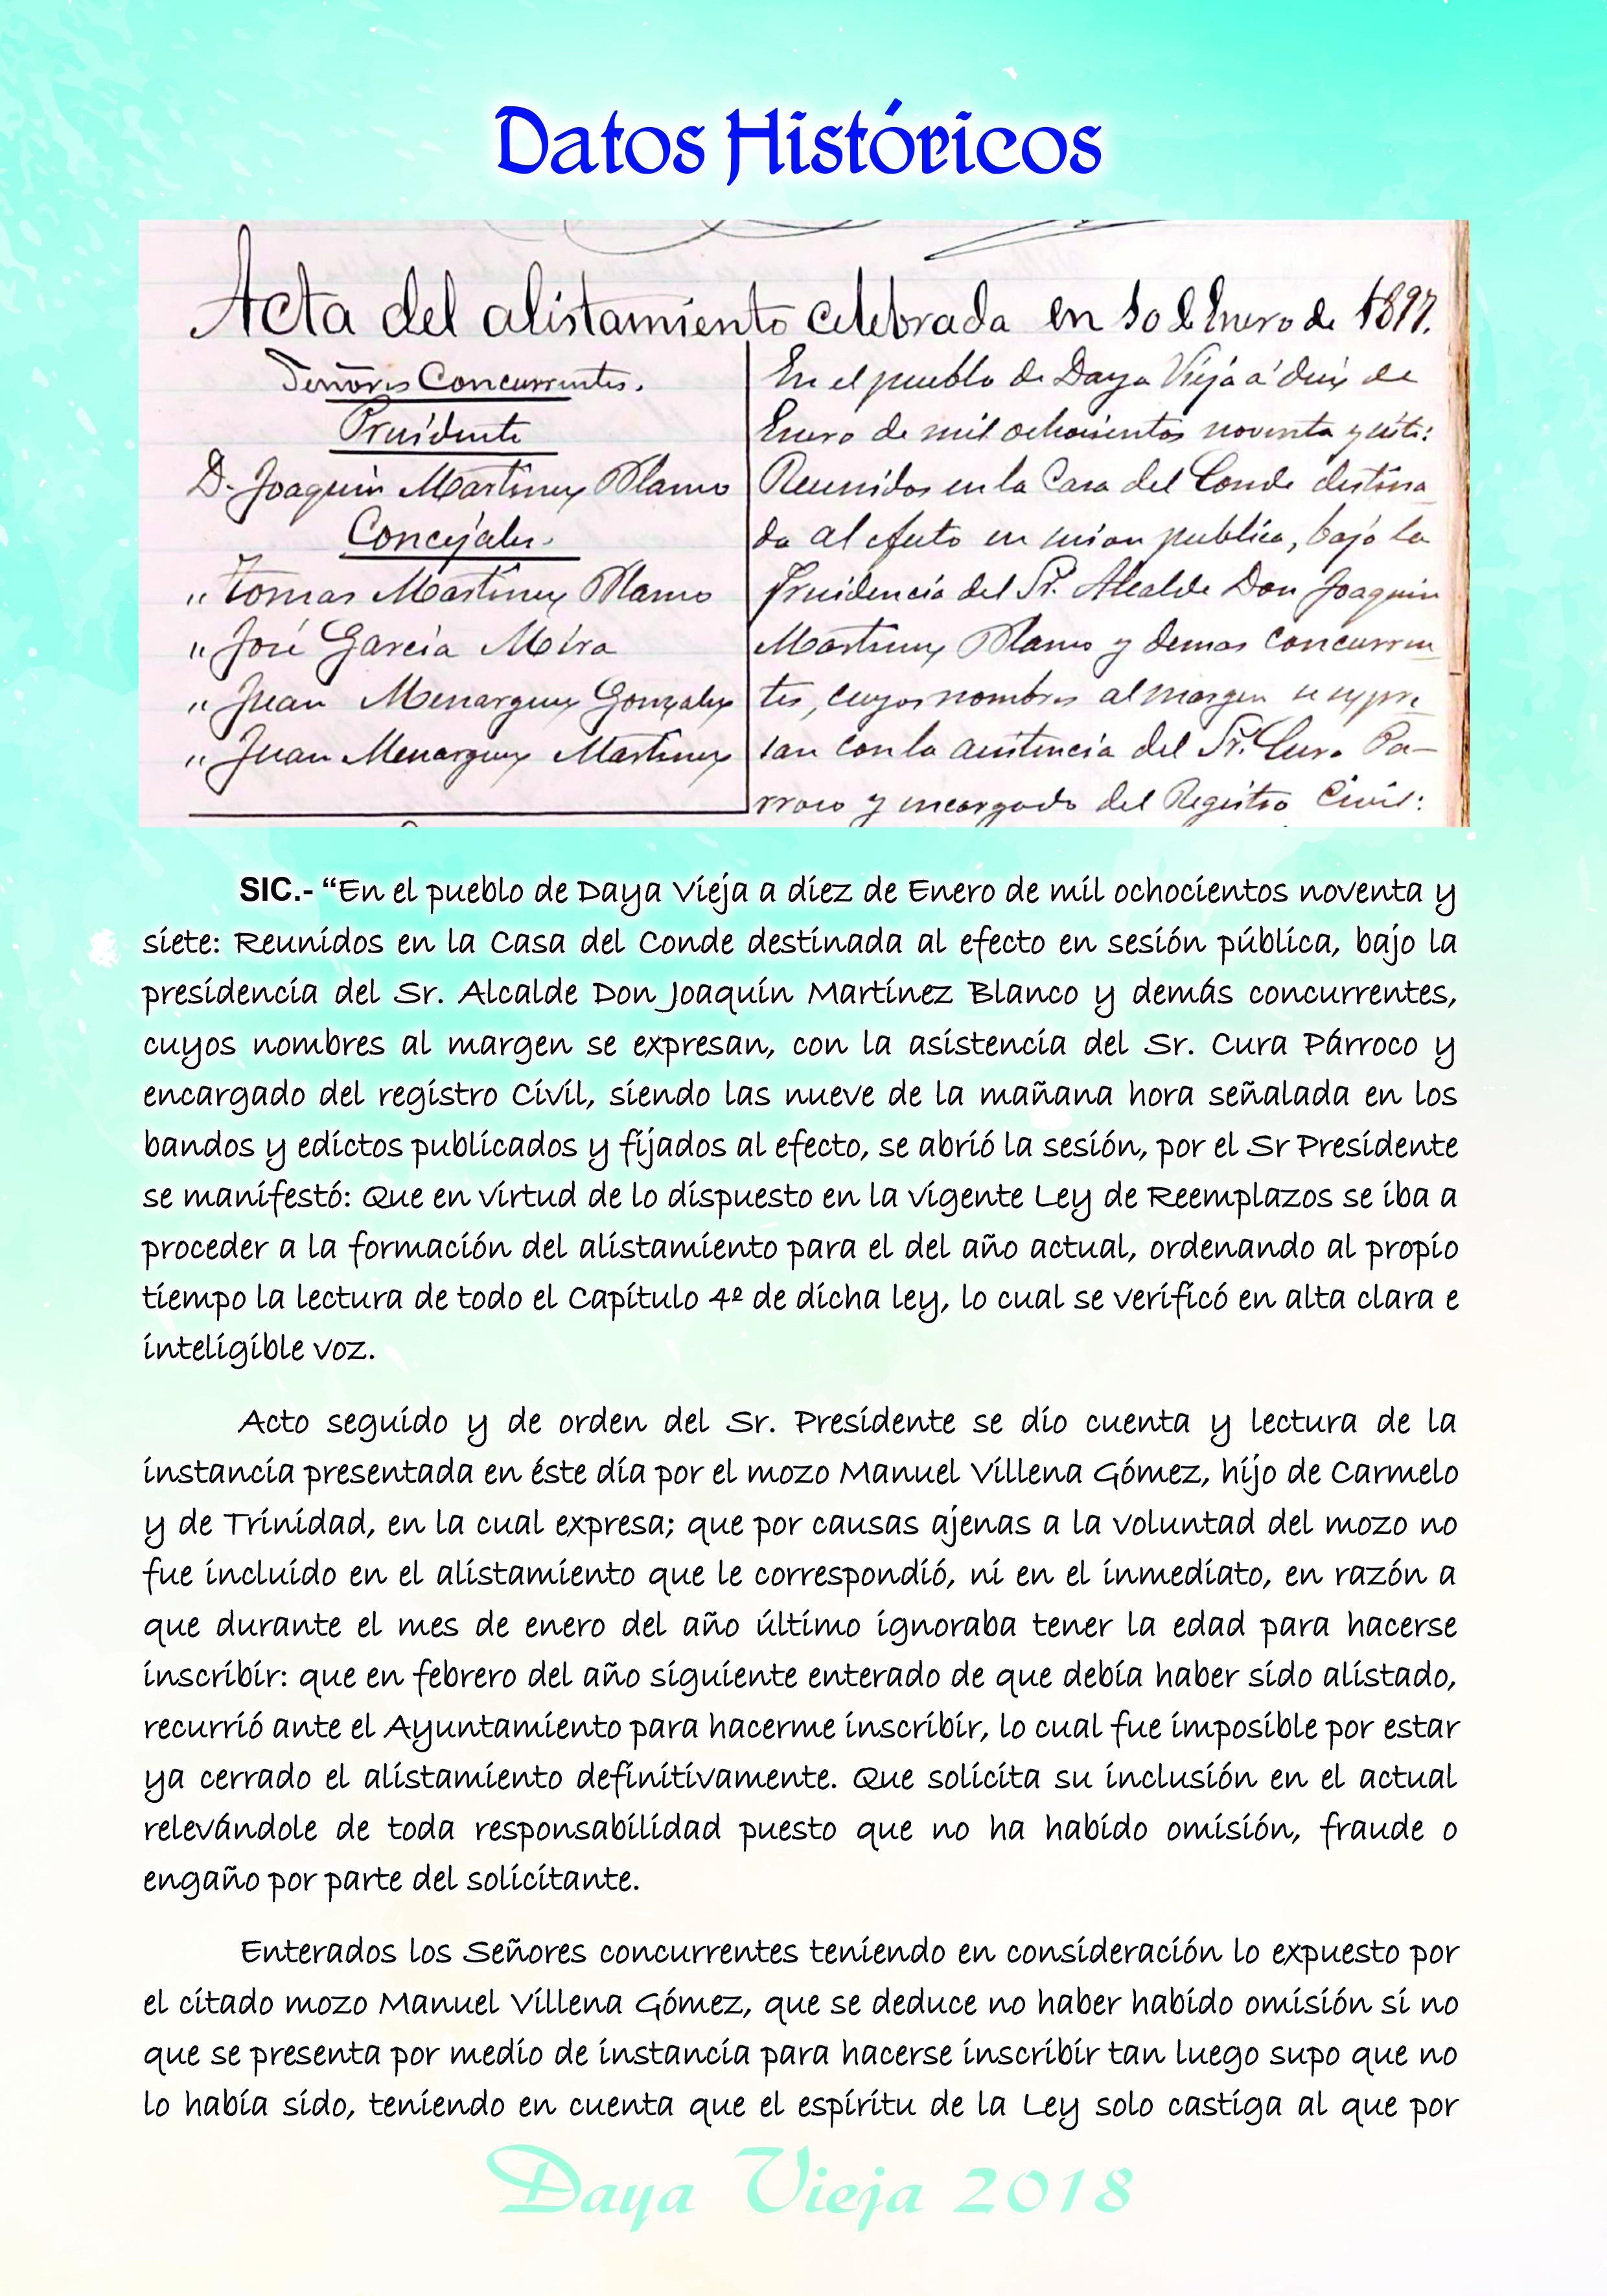 Datos Históricos
Acta del alistamiento celebrada en 10 de Enero de 1897.
Señores Concurrentes.
Presidente
D. Joaquin Martinez Blanco
Concejales.
„ Tomas Martinez Blanco
„ José Garcia Mira
„ Juan Menarguez Gonzalez
„ Juan Menarguez Martinez
En el pueblo de Daya Vieja á diez de
Enero de mil ochocientos noventa y siete:
Reunidos en la Casa del Conde destina
da al efecto en sesion publica, bajo la
Presidencia del Sr. Alcalde Don Joaquin
Martinez Blanco y demas concurren
tes, cuyos nombres al margen se expre
san con la asistencia del Sr. Cura Pa-
rroco y encargado del Registro Civil:
SIC.- “En el pueblo de Daya Vieja a diez de Enero de mil ochocientos noventa y
siete: Reunidos en la Casa del Conde destinada al efecto en sesión pública, bajo la
presidencia del Sr. Alcalde Don Joaquín Martínez Blanco y demás concurrentes,
cuyos nombres al margen se expresan, con la asistencia del Sr. Cura Párroco y
encargado del registro Civil, siendo las nueve de la mañana hora señalada en los
bandos y edictos publicados y fijados al efecto, se abrió la sesión, por el Sr Presidente
se manifestó: Que en virtud de lo dispuesto en la vigente Ley de Reemplazos se iba a
proceder a la formación del alistamiento para el del año actual, ordenando al propio
tiempo la lectura de todo el Capítulo 4º de dicha ley, lo cual se verificó en alta clara e
inteligible voz.
Acto seguido y de orden del Sr. Presidente se dio cuenta y lectura de la
instancia presentada en éste día por el mozo Manuel Villena Gómez, hijo de Carmelo
y de Trinidad, en la cual expresa; que por causas ajenas a la voluntad del mozo no
fue incluido en el alistamiento que le correspondió, ni en el inmediato, en razón a
que durante el mes de enero del año último ignoraba tener la edad para hacerse
inscribir: que en febrero del año siguiente enterado de que debía haber sido alistado,
recurrió ante el Ayuntamiento para hacerme inscribir, lo cual fue imposible por estar
ya cerrado el alistamiento definitivamente. Que solicita su inclusión en el actual
relevándole de toda responsabilidad puesto que no ha habido omisión, fraude o
engaño por parte del solicitante.
Enterados los Señores concurrentes teniendo en consideración lo expuesto por
el citado mozo Manuel Villena Gómez, que se deduce no haber habido omisión si no
que se presenta por medio de instancia para hacerse inscribir tan luego supo que no
lo había sido, teniendo en cuenta que el espíritu de la Ley solo castiga al que por
Daya Vieja 2018